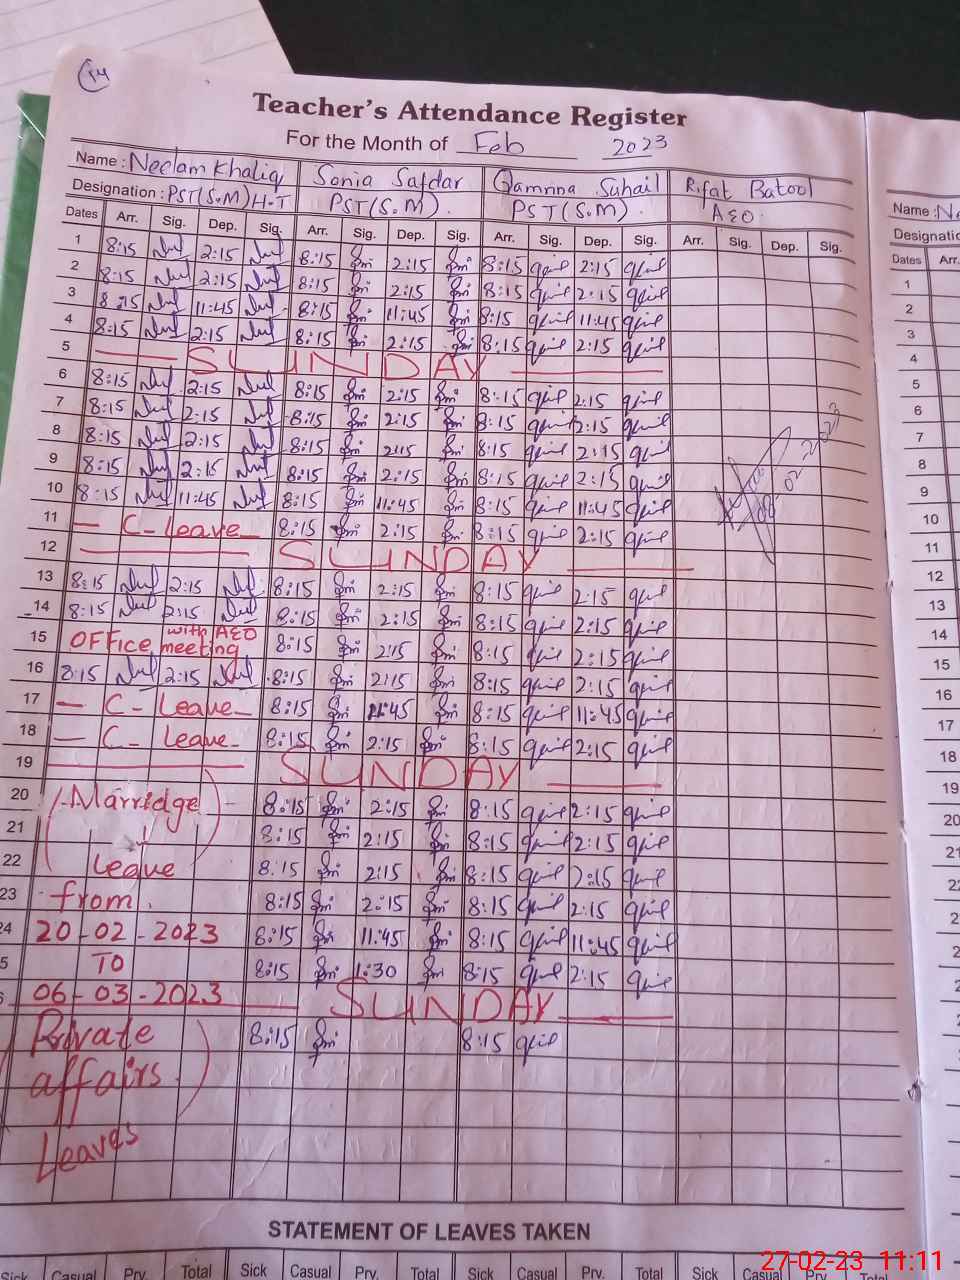 14
Teacher's Attendance Register
For the Month of Feb 2023
Name : Neelam Khaliq Sonia Safdar Qamrina Suhail Rifat Batool
Designation : PST(S.M) H.T PST(S.M). PST(S.M). AEO.
Dates Arr. Sig. Dep. Sig. Arr. Sig. Dep. Sig. Arr. Sig. Dep. Sig. Arr. Sig. Dep. Sig.
1 8:15 2:15 8:15 2:15 8:15 2:15
2 8:15 2:15 8:15 2:15 8:15 2:15
3 8:15 11:45 8:15 11:45 8:15 11:45
4 8:15 2:15 8:15 2:15 8:15 2:15
5 SUNDAY
6 8:15 2:15 8:15 2:15 8:15 2:15
7 8:15 2:15 8:15 2:15 8:15 2:15
8 8:15 2:15 8:15 2:15 8:15 2:15
9 8:15 2:15 8:15 2:15 8:15 2:15
10 8:15 11:45 8:15 11:45 8:15 11:45
11 — C - Leave — 8:15 2:15 8:15 2:15
12 SUNDAY
13 8:15 2:15 8:15 2:15 8:15 2:15
14 8:15 2:15 8:15 2:15 8:15 2:15
15 OFFice with AEO meeting 8:15 2:15 8:15 2:15
16 8:15 2:15 8:15 2:15 8:15 2:15
17 — C - Leave — 8:15 11:45 8:15 11:45
18 — C - Leave — 8:15 2:15 8:15 2:15
19 SUNDAY
20 (Marridge) 8:15 2:15 8:15 2:15
21 8:15 2:15 8:15 2:15
22 leave 8:15 2:15 8:15 2:15
23 from. 8:15 2:15 8:15 2:15
24 20-02-2023 8:15 11:45 8:15 11:45
5 TO 8:15 1:30 8:15 2:15
6 06-03-2023 SUNDAY
(Private 8:15 8:15
affairs)
Leaves
STATEMENT OF LEAVES TAKEN
Sick Casual Prv. Total Sick Casual Prv. Total Sick Casual Prv. Total Sick Casual Prv. Total
Name : Ne
Designatio
Dates Arr.
1
2
3
4
5
6
7
8
9
10
11
12
13
14
15
16
17
18
19
20
21
22
27-02-23 11:11